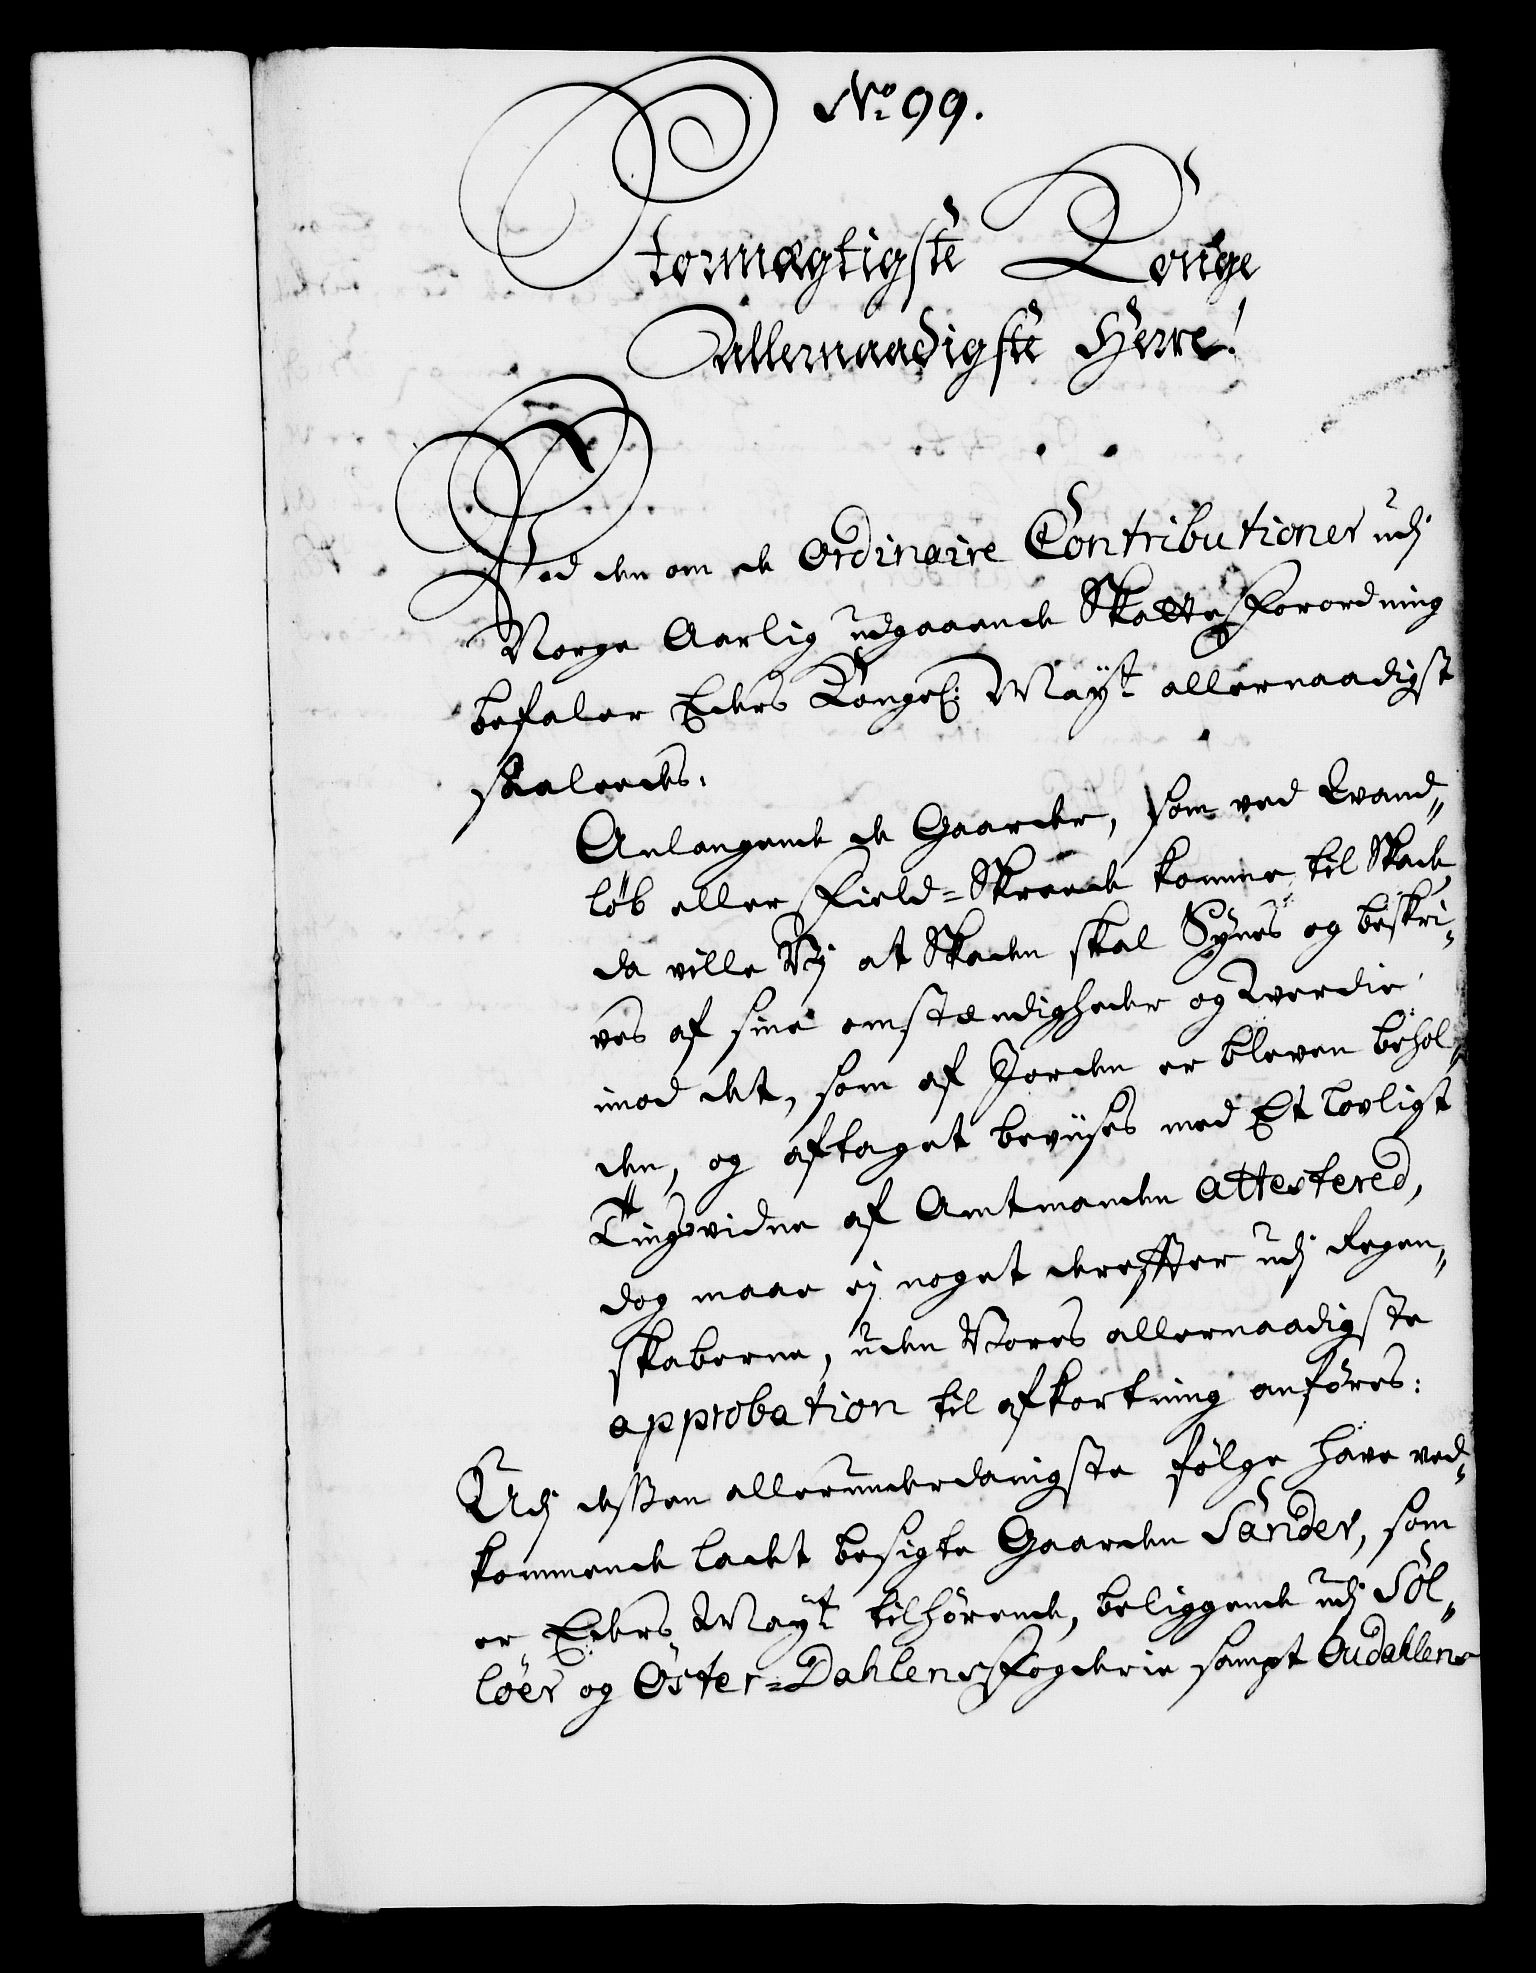 No 99.
Stormægtigste Konge
Allernaadigste Herre!
Ved den om de Ordinaire Contributioner udj
Norge Aarlig udgaaende Skatte Forordning
befaler Eders Kongel: Mayt allernaadigst
saaledes:
Anlangende de Gaarder, som ved Vand„
løb eller Field-Skreede komme til Skade,
da ville Vij at Skaden skal Synes og beskri„
ves af sine omstændigheder og Værdie
imod det, som af Jorden er bleven behol„
den, og aftaget beviises med Et lovligt
Tingsvidne af Amtmanden attestered,
dog maae ej noget dereffter udj Regen„
skaberne, uden Vores allernaadigste
approbation til afkortning anføres:
Udj dessen allerunderdanigste følge have ved„
kommende ladet besigte Gaarden Sander, som
er Eders Mayt tilhørende, beliggende udj Sol„
løer og Øster-Dahlens Fogderie sampt Oudahlens